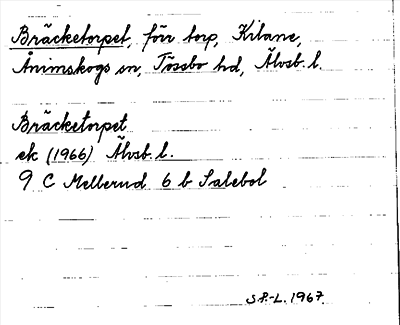 Bräcketorpet, förr torp, Kilane,
Ånimskogs sn, Tössbo hd, Älvsb. l.
Bräcketorpet
ek (1966) Älvsb. l.
9 C Mellerud 6 b Salebol
S P.-L. 1967